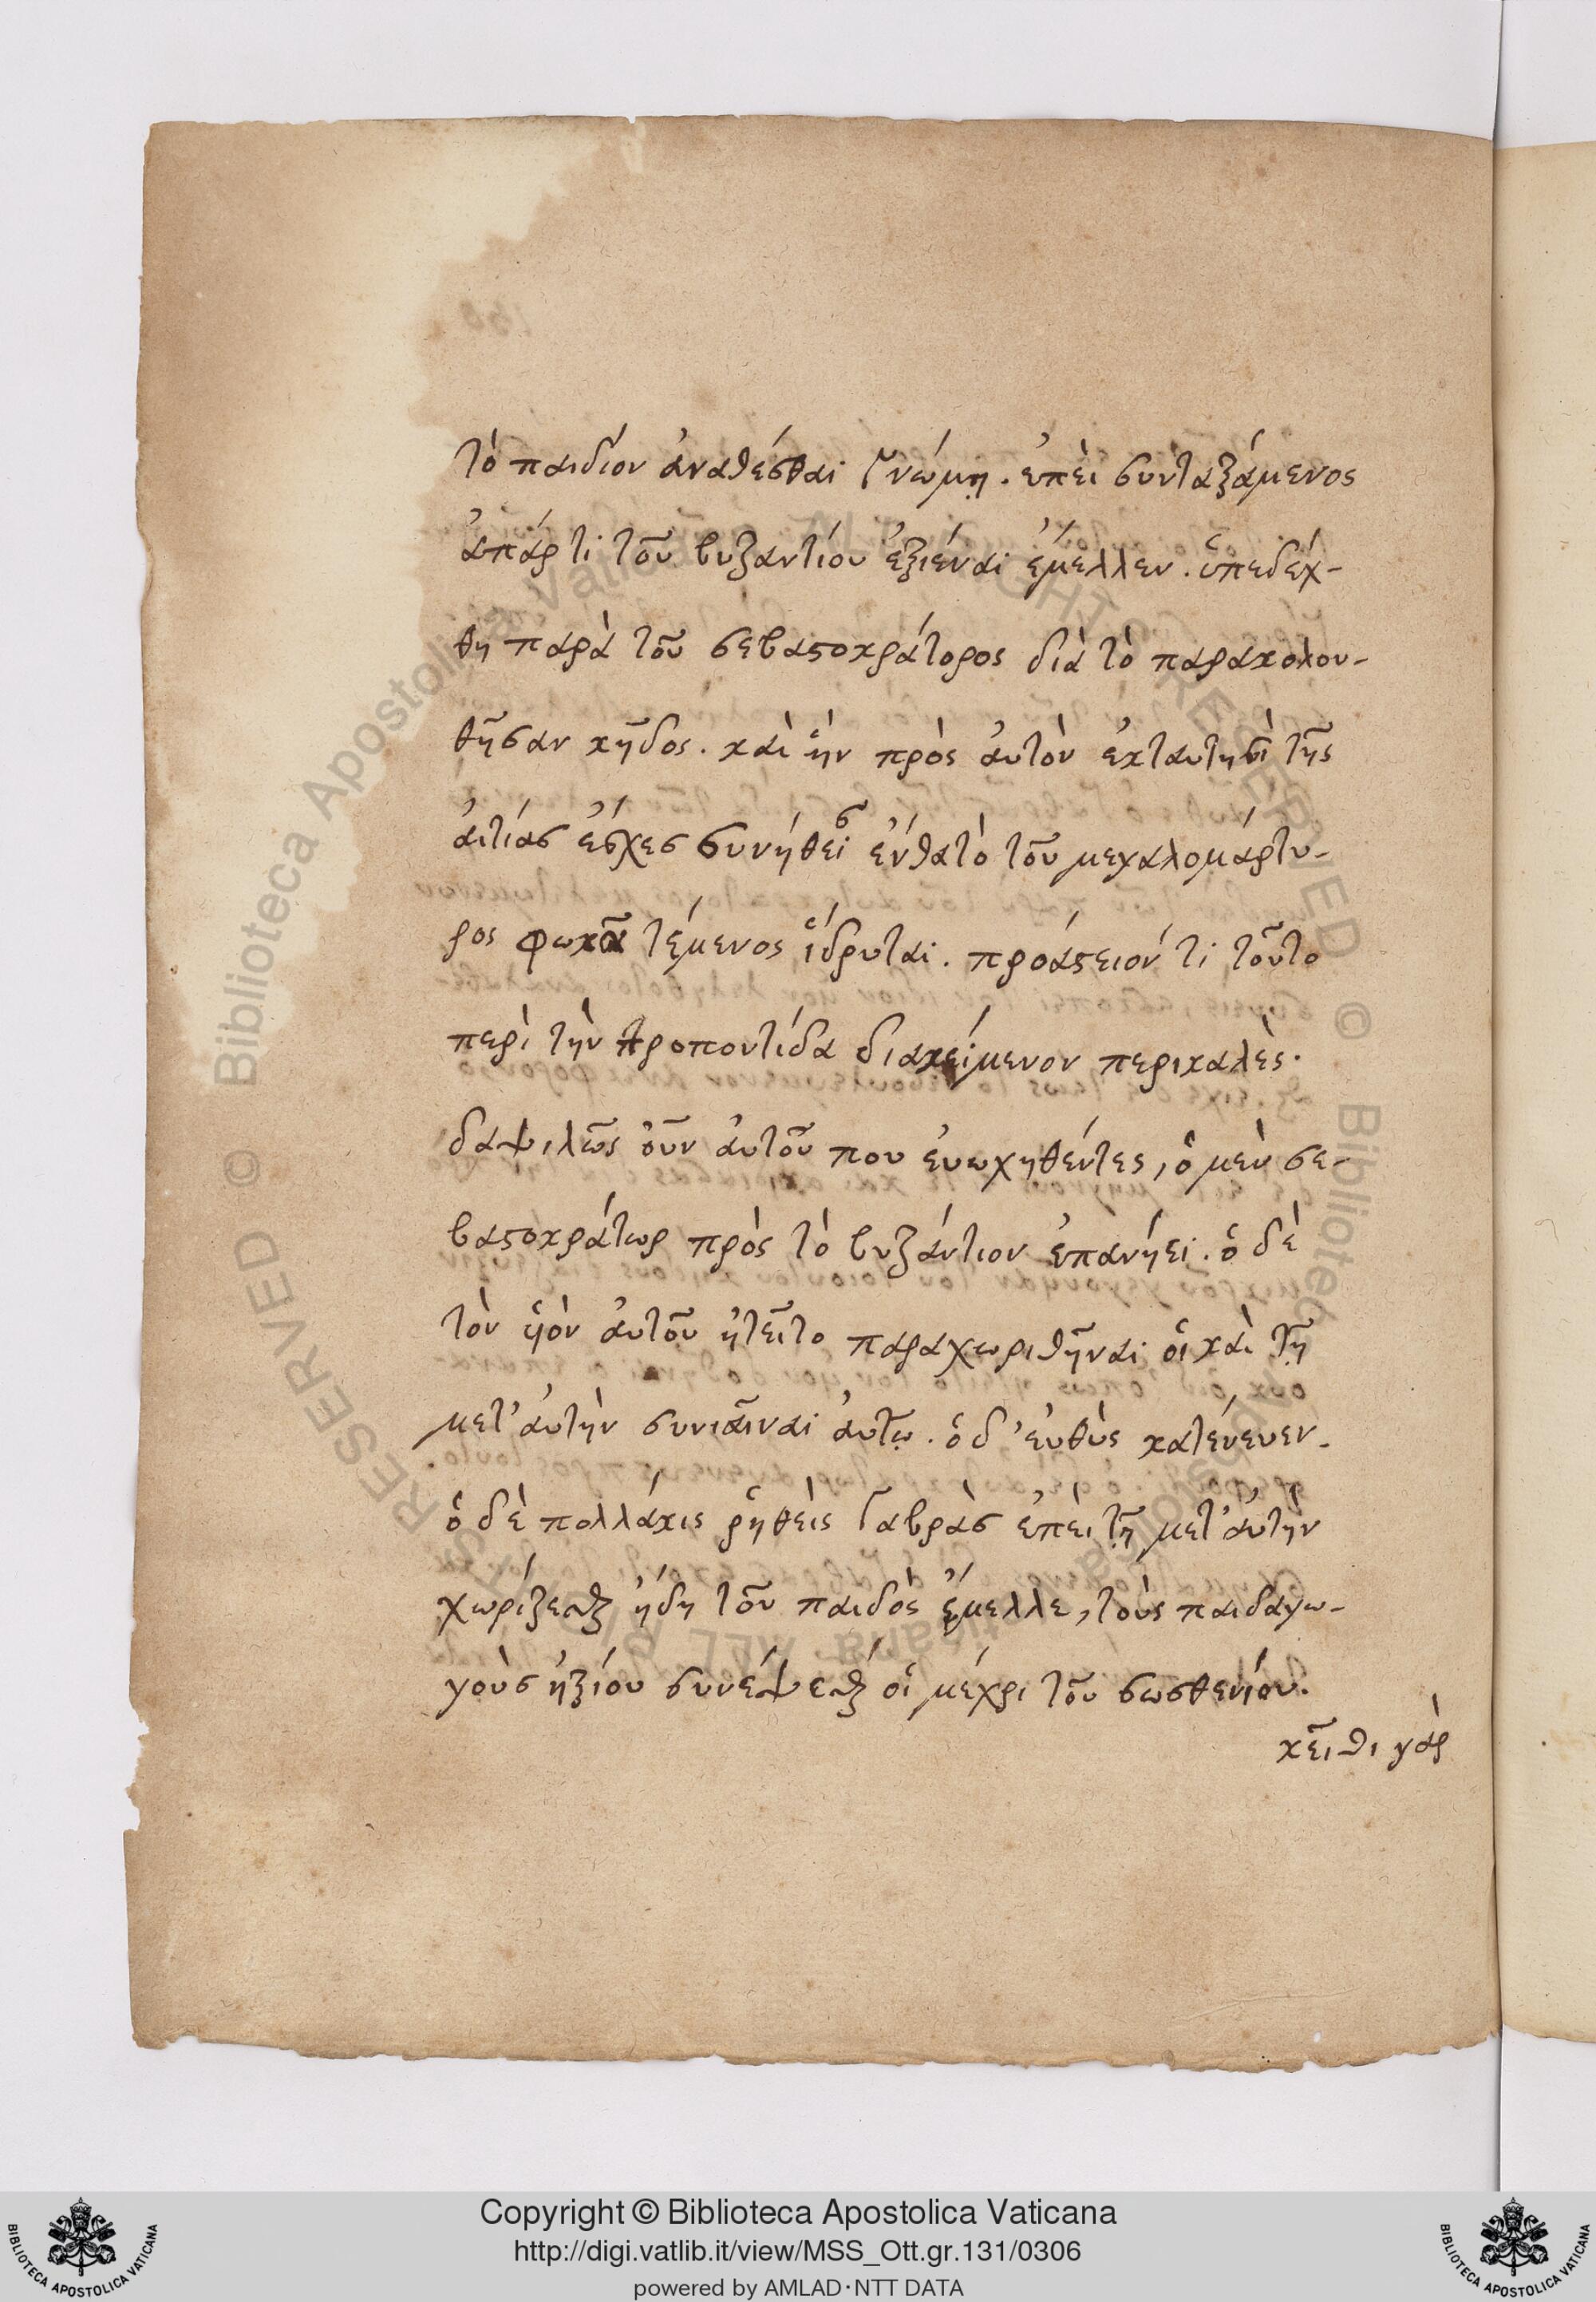 τὸ παιδίον ἀναθέσθαι γνώμῃ. ἐπεὶ συνταξάμενος
ἀπάρτι τοῦ βυζαντίου ἐξιέναι ἔμελλεν. ὑπεδέχ-
θη παρὰ τοῦ σεβαστοκράτορος διὰ τὸ παρακολου-
θῆσαν κῆδος. καὶ ἣν πρὸς ἀυτὸν ἐκταυτησὶ τῆς
ἀιτίας ἔσχες συνήθει ἔνθατὸ τοῦ μεγαλομάρτυ-
ρος φωκᾶ τέμενος ἵδρυται. προάστειόν τι τοῦτο
περὶ τὴν προποντίδα διακείμενον περικαλὲς.
δαψιλῶς οὖν ἀυτοῦ που ἐυωχηθέντες, ὁ μὲν σε-
βαστοκράτωρ πρὸς τὸ βυζάντιον ἐπανήει. ὁ δὲ
τὸν ὑὸν ἀυτοῦ ἠτεῖτο παραχωριθῆναι οἱ καὶ τῇ
μετ' ἀυτὴν ἀυτῷ. ὁ δ' ἐυθὺς κατένευεν.
ὁ δὲ πολλάκις ῥηθεὶς Γαβρὰς ἐπεὶ τῇ μετ' ἀυτὴν
χωρίζεσθαι ἤδη τοῦ παιδὸς ἔμελλε, τοὺς παιδαγω-
γοὺς ἠξίου συνέψεσθαί οἱ μέχρι τοῦ σωσθενίου.
κεῖθι γὰρ
Copyright © Biblioteca Apostolica Vaticana
http://digi.vatlib.it/view/MSS_Ott.gr.131/0306
powered by AMLAD·NTT DATA